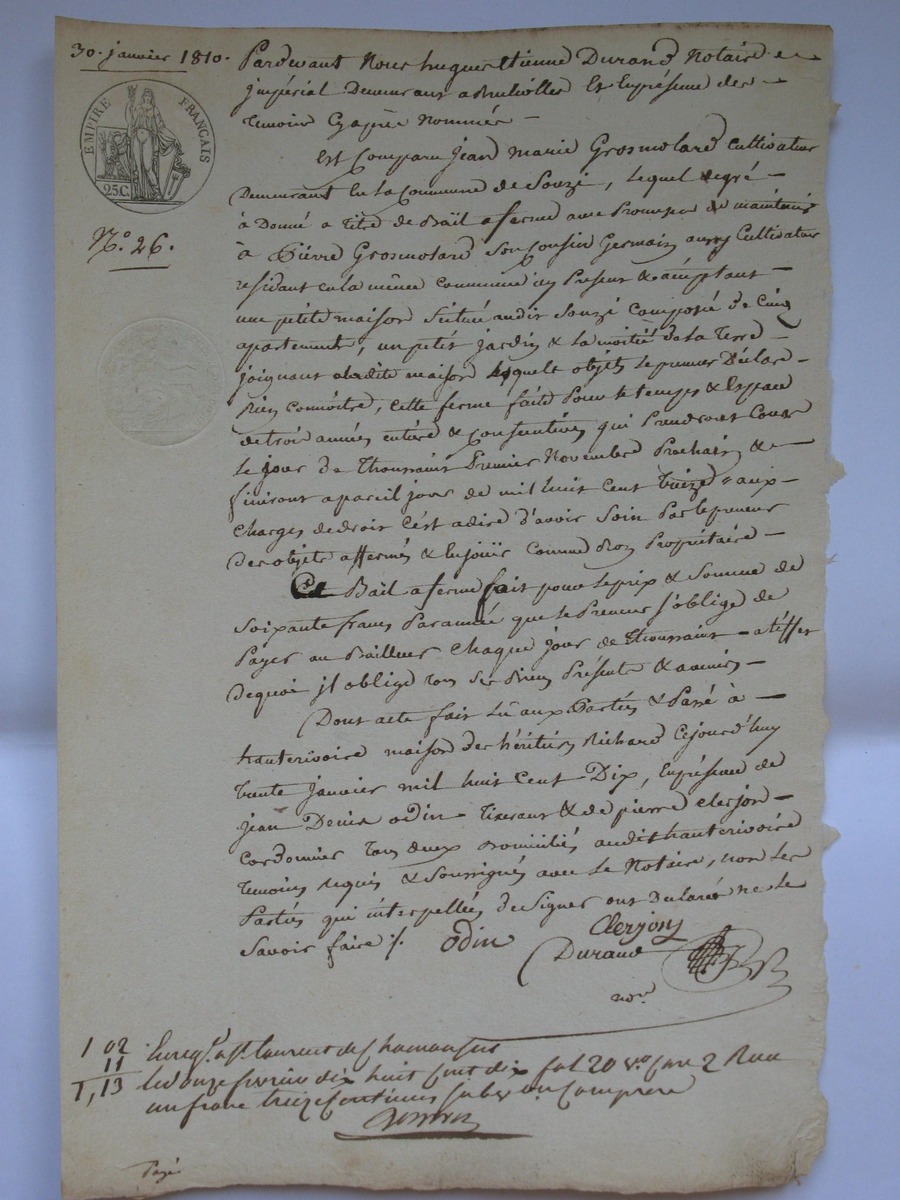 30. janvier 1810.
EMPIRE FRANÇAIS
25 C.
N.° 26.
Pardevant Nous hugues Etienne Durand Notaire
impérial Demeurant a Brulliolles Et En présence des
temoins Cy après nommés
Est Comparu Jean Marie Grosmolard Cultivateur
Demeurant En La Commune de Souzi, lequel de gré
à Donné a Titre de Bail a ferme avec Promesse de maintenir
à Pierre Grosmolard Son Cousin Germain aussy Cultivateur
residant en la même Commune icy Present & acceptant
une petite maison Située audit Souzi Composée de Cinq
apartements, un petit jardin & la moitié de la Terre
joignant a ladite maison lesquels objets le preneur Déclare
Bien Connoître, Cette ferme faite Pour le temps & Espace
de trois années entière & Consecutives qui Prendront Cours
le jour de Thoussaint Premier Novembre Prochain &
finiront a pareil jour de mil huit Cent treize aux
Charges de droit C'est a dire d'avoir Soin Par le preneur
des objets affermés & En joüir Comme Bon Proprietaire
Ce Bail a ferme fait pour le prix & Somme de
Soixante francs Par année que le Preneur s'oblige de
Payer au Bailleur Chaque jour de Thoussaint a l'effet
de quoi il oblige tous Ses Biens Présents & avenir
Dont acte fait Lû aux Parties & Passé à
hauterivoire maison des héritiers Richard Cejourd'huy
trente janvier mil huit Cent Dix, En présence de
jean Denis odin tixerant & de pierre clerjon
Cordonnier tous deux Domiciliés audit hauterivoire
temoins requis & Soussignés avec le Notaire, non les
Parties qui interpellées de Signer ont Declaré ne le
Savoir faire ./. odin Clerjon
Durand
no.re
1 02
11
1,13
Enreg.é a S.t Laurent de Chamousset
le onze fevrier dix huit cent dix fol 20 v.o Case 2 Reçu
un franc treize Centimes Subv.on Comprise
Payé